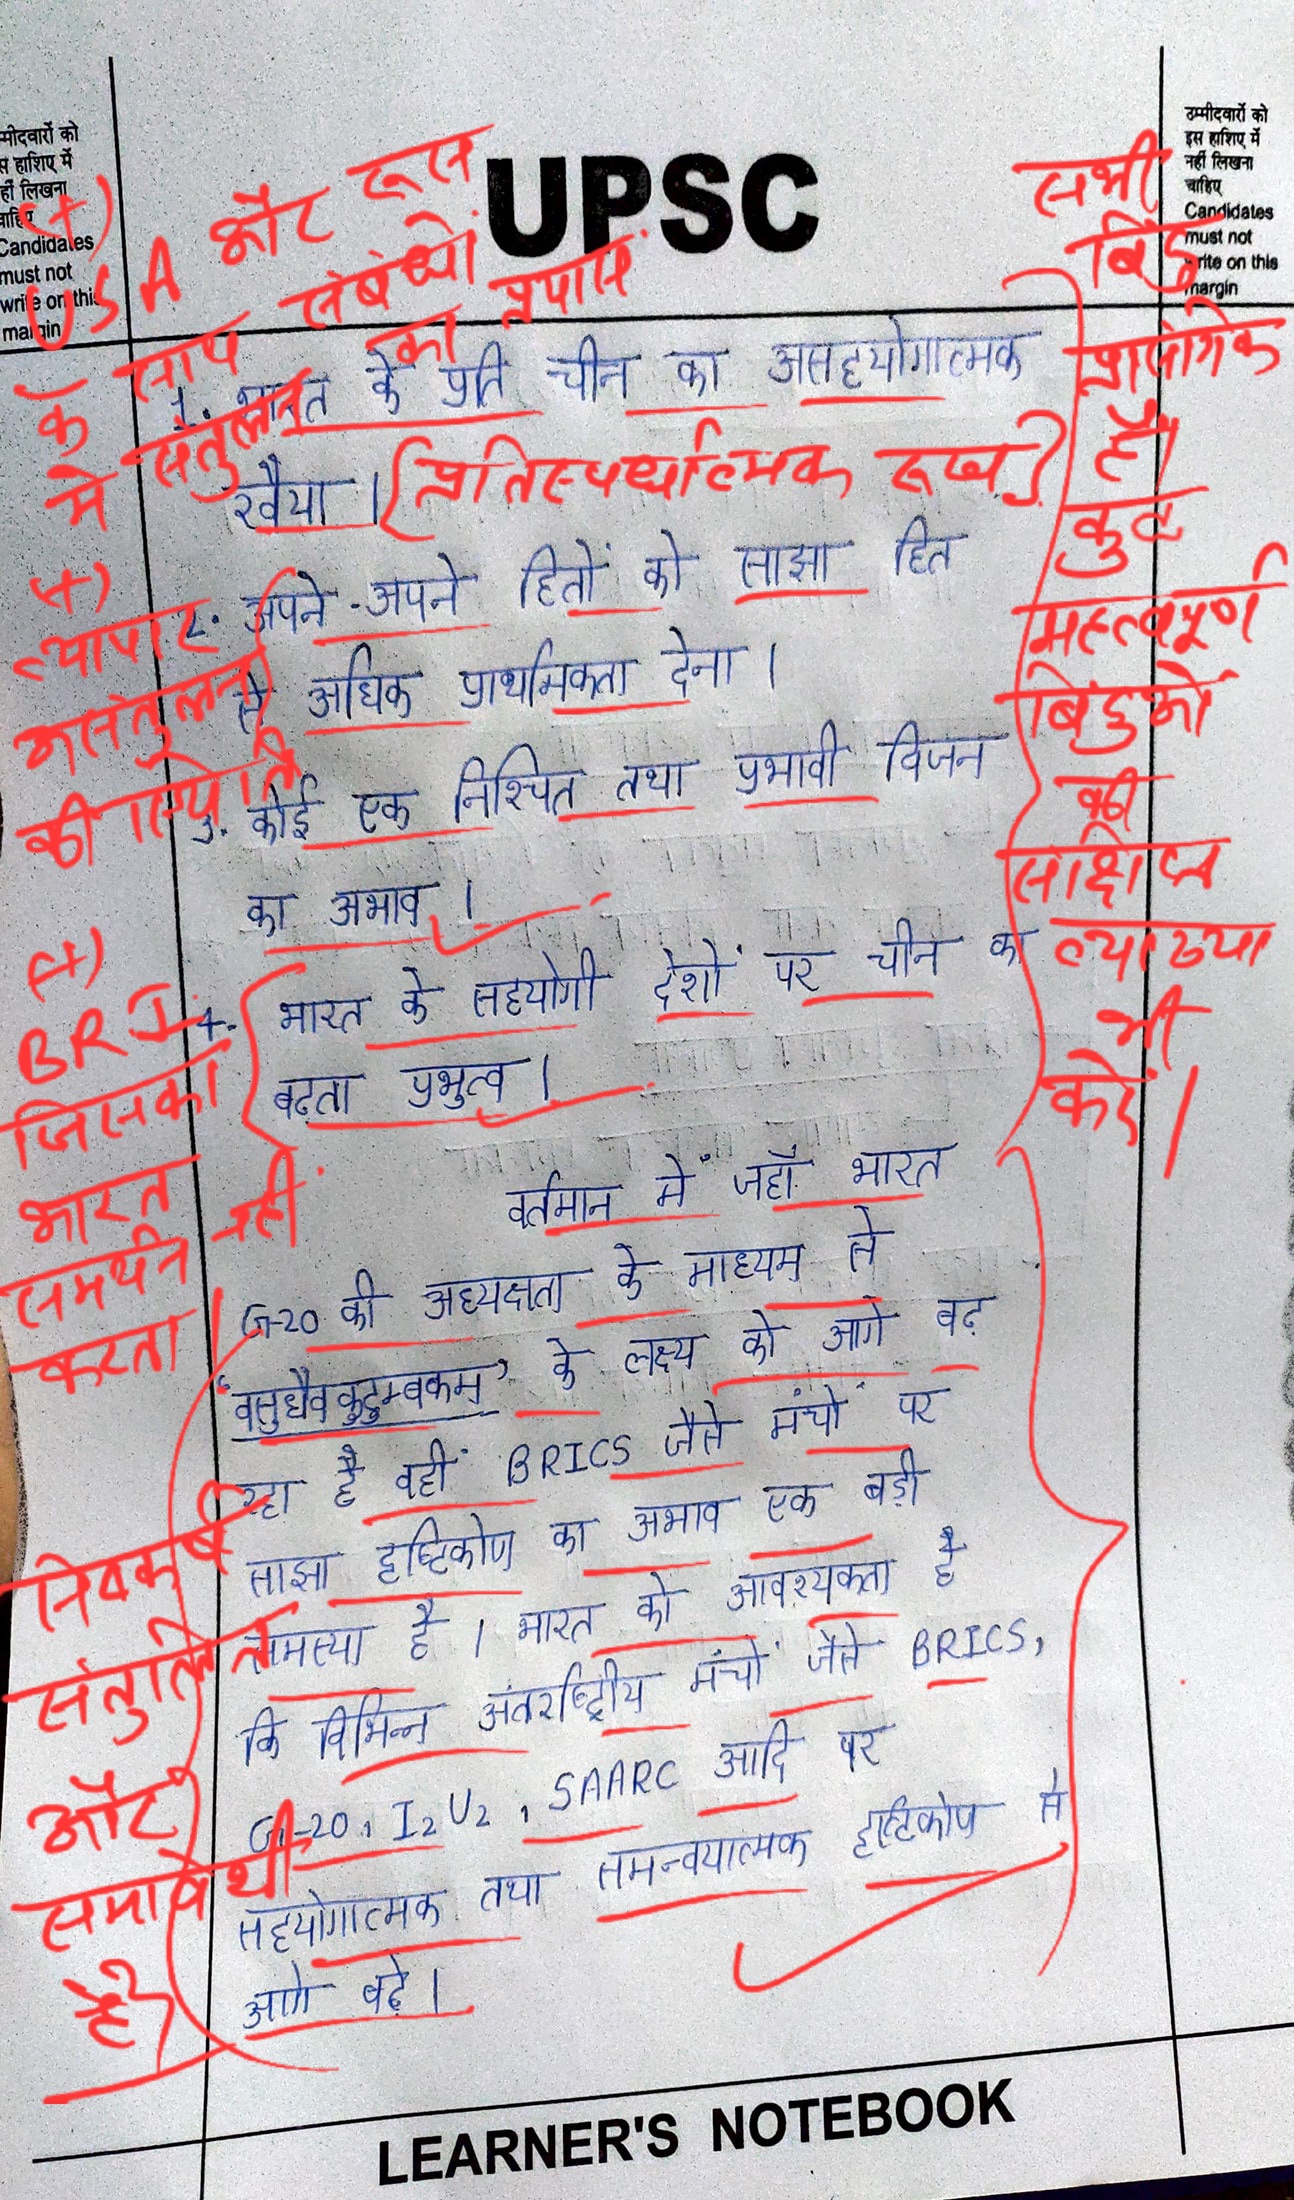 UPSC
मीदवारों को
स हाशिए में
हीं लिखना
चाहिए
Candidates
must not
write on this
margin
उम्मीदवारों को
इस हाशिए में
नहीं लिखना
चाहिए
Candidates
must not
write on this
margin
(+)
USA और रूस
के साथ संबंधों
में संतुलन का प्रयास
1. भारत के प्रति चीन का असहयोगात्मक
रवैया । (प्रतिस्पर्धात्मक रूख)
2. अपने-अपने हितों को साझा हित
से अधिक प्राथमिकता देना ।
3. कोई एक निश्चित तथा प्रभावी विजन
का अभाव ।
4. भारत के सहयोगी देशों पर चीन का
बढता प्रभुत्व ।
(+)
व्यापार
असंतुलन
की स्थिति
(+)
BRI
जिसका
भारत
समर्थन नहीं
करता।
सभी
बिंदु
प्रासंगिक
हैं।
कुछ
महत्वपूर्ण
बिंदुओं
की
संक्षिप्त
व्याख्या
भी
करें।
वर्तमान में जहाँ भारत
G-20 की अध्यक्षता के माध्यम से
'वसुधैव कुटुम्बकम्' के लक्ष्य को आगे बढ़
रहा है वहीं BRICS जैसे मंचों पर
साझा दृष्टिकोण का अभाव एक बड़ी
समस्या है । भारत को आवश्यकता है
कि विभिन्न अंतर्राष्ट्रीय मंचों जैसे BRICS,
G-20, I2U2, SAARC आदि पर
सहयोगात्मक तथा समन्वयात्मक दृष्टिकोण से
आगे बढ़े ।
निष्कर्ष
संतुलित
और
समावेशी
है।
LEARNER'S NOTEBOOK